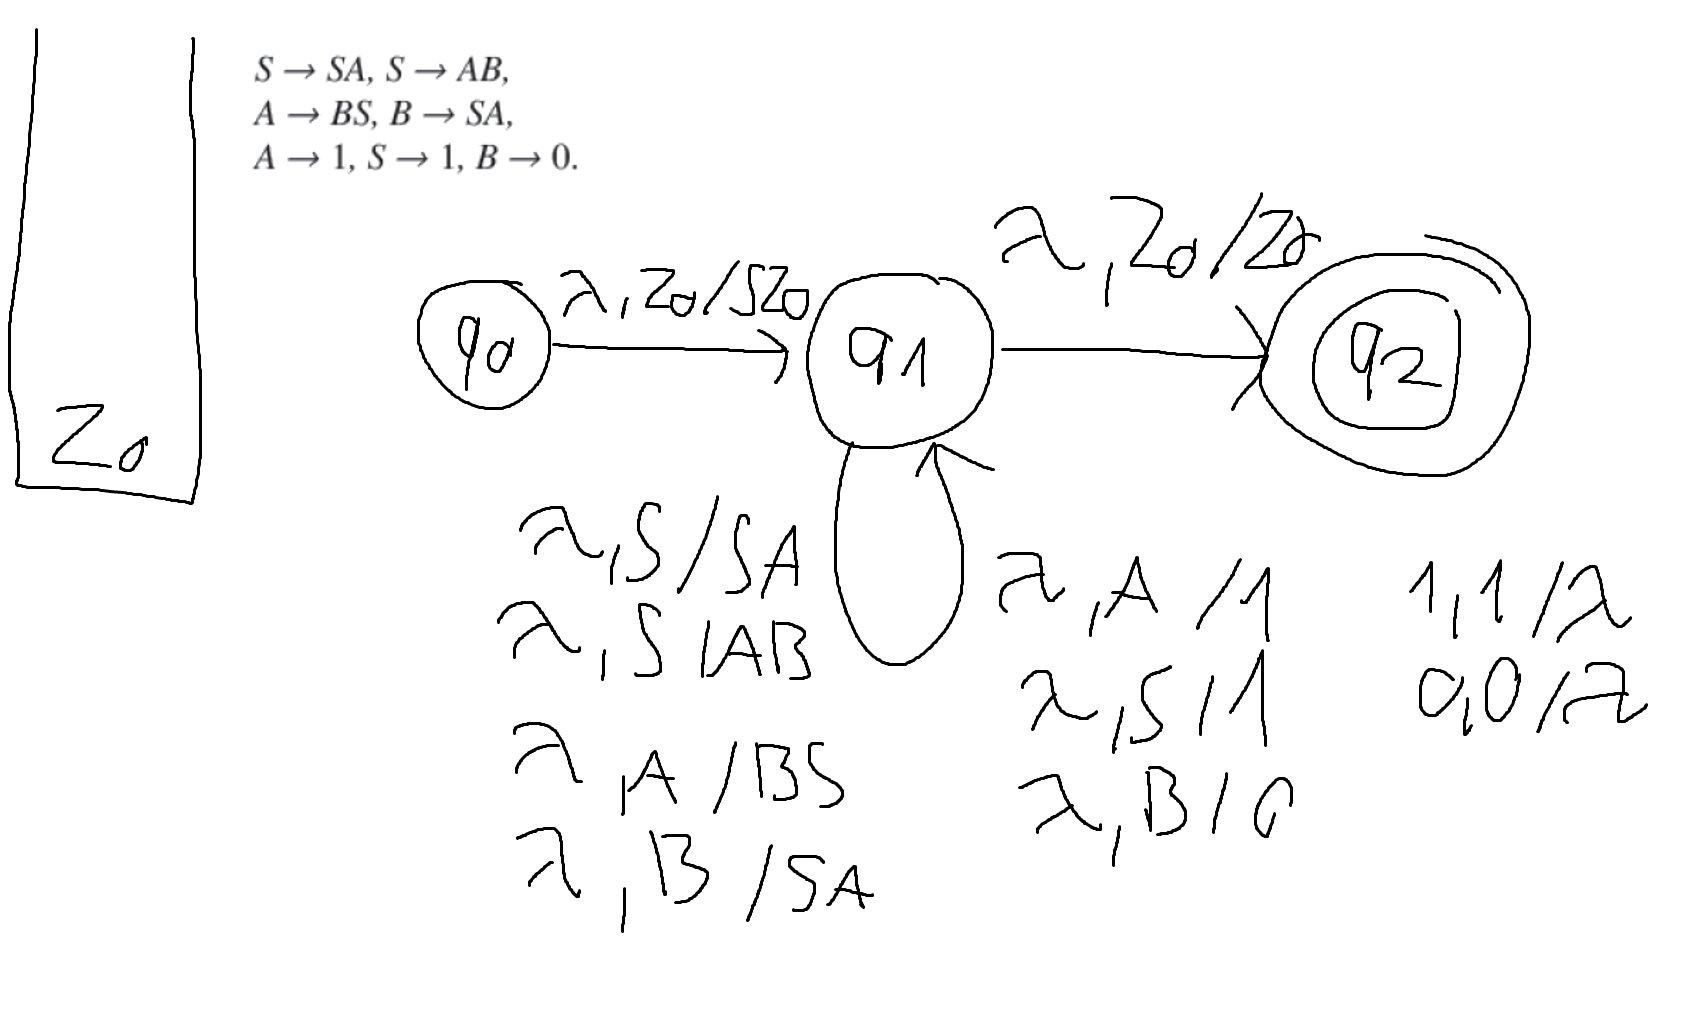 S → SA, S → AB,
A → BS, B → SA,
A → 1, S → 1, B → 0.
λ, Z0/Z0
λ, Z0/SZ0
q0
q1
q2
Z0
λ, S/SA
λ, S/AB
λ, A/BS
λ, B/SA
λ, A/1
λ, S/1
λ, B/0
1, 1/λ
0, 0/λ